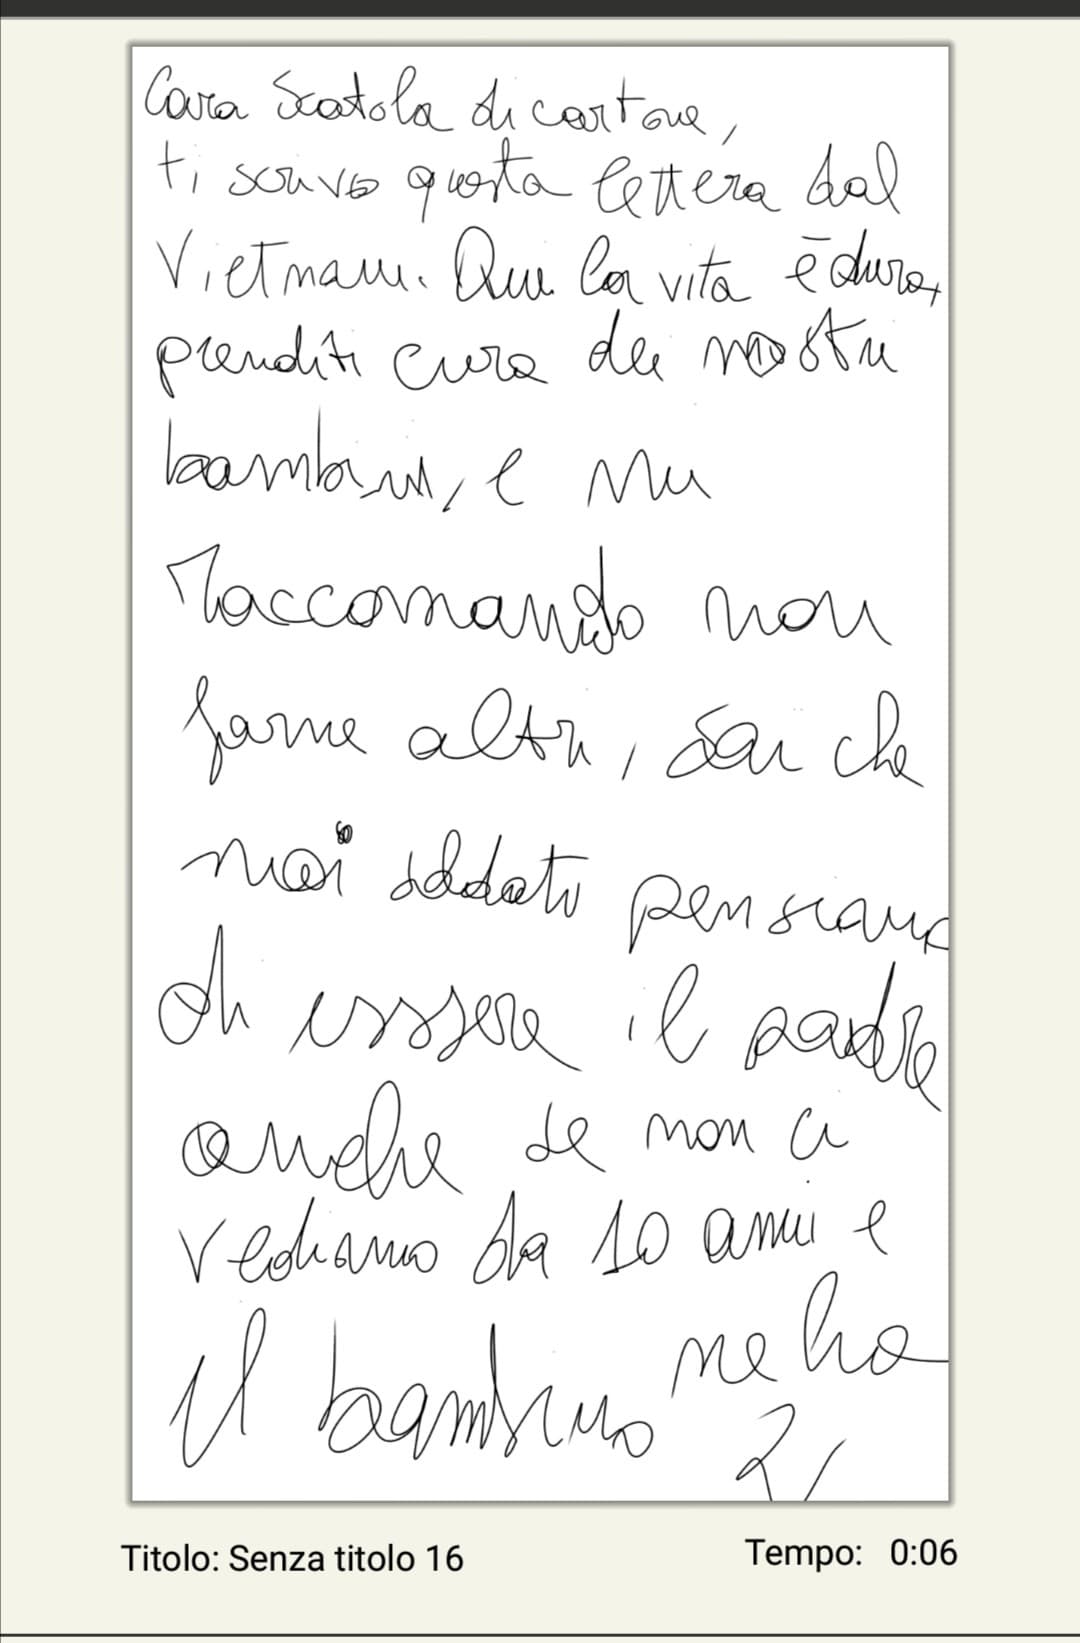 Cara Scatola di cartone,
ti scrivo questa lettera dal
Vietnam. Qui la vita è dura,
prenditi cura dei nostri
bambini, e mi
raccomando non
farne altri, sai che
noi soldati pensiamo
di essere il padre
anche se non ci
vediamo da 10 anni e
il bambino ne ha
2,
Titolo: Senza titolo 16
Tempo: 0:06